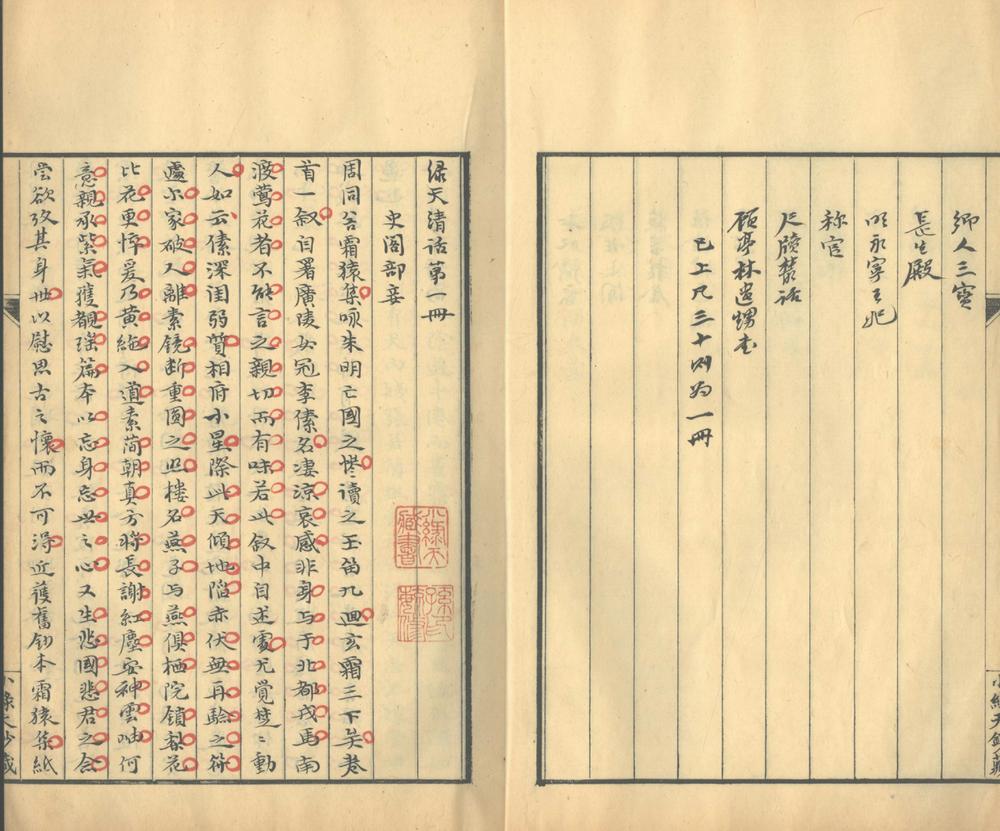 鄉人三寶
長生殿
明永寧王妃
稗官
尺牘叢話
顧亭林遺甥書
已上凡三十則為一冊
小綠天鈔藏
绿天清话第一冊
史阁部妾
周同谷霜猿集咏朱明亡國之惨讀之玉笛九迴玄霜三下矣卷
首一叙自署廣陵女冠李傃名凄涼哀感非身与于北都戎馬南
渡鶯花者不能言之親切而有味若此叙中自述處尤覺楚楚動
人如云傃深闺弱質相府小星際此天傾地陷亦伏無再驗之符
遽尔家破人離素鏡断重圆之照樓名燕子与燕俱栖院鎖梨花
比花更悴爰乃黄絁入道素简朝真方将長謝紅塵密神雲岫何
意親承紫氣獲覩瑶篇本以忘身忘世之心又生悲國悲君之念
尝欲攷其身世以慰思古之懷而不可得近獲舊鈔本霜猿集紙
小綠天鈔藏
小綠天藏書
孫氏